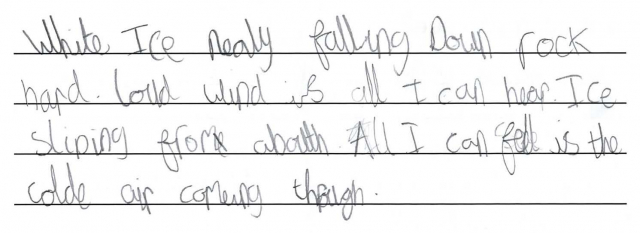 White Ice nealy falling Down rock
hard. loud wind is all I can hear. Ice
sliping from abouth All I can feel is the
colde air coming though.